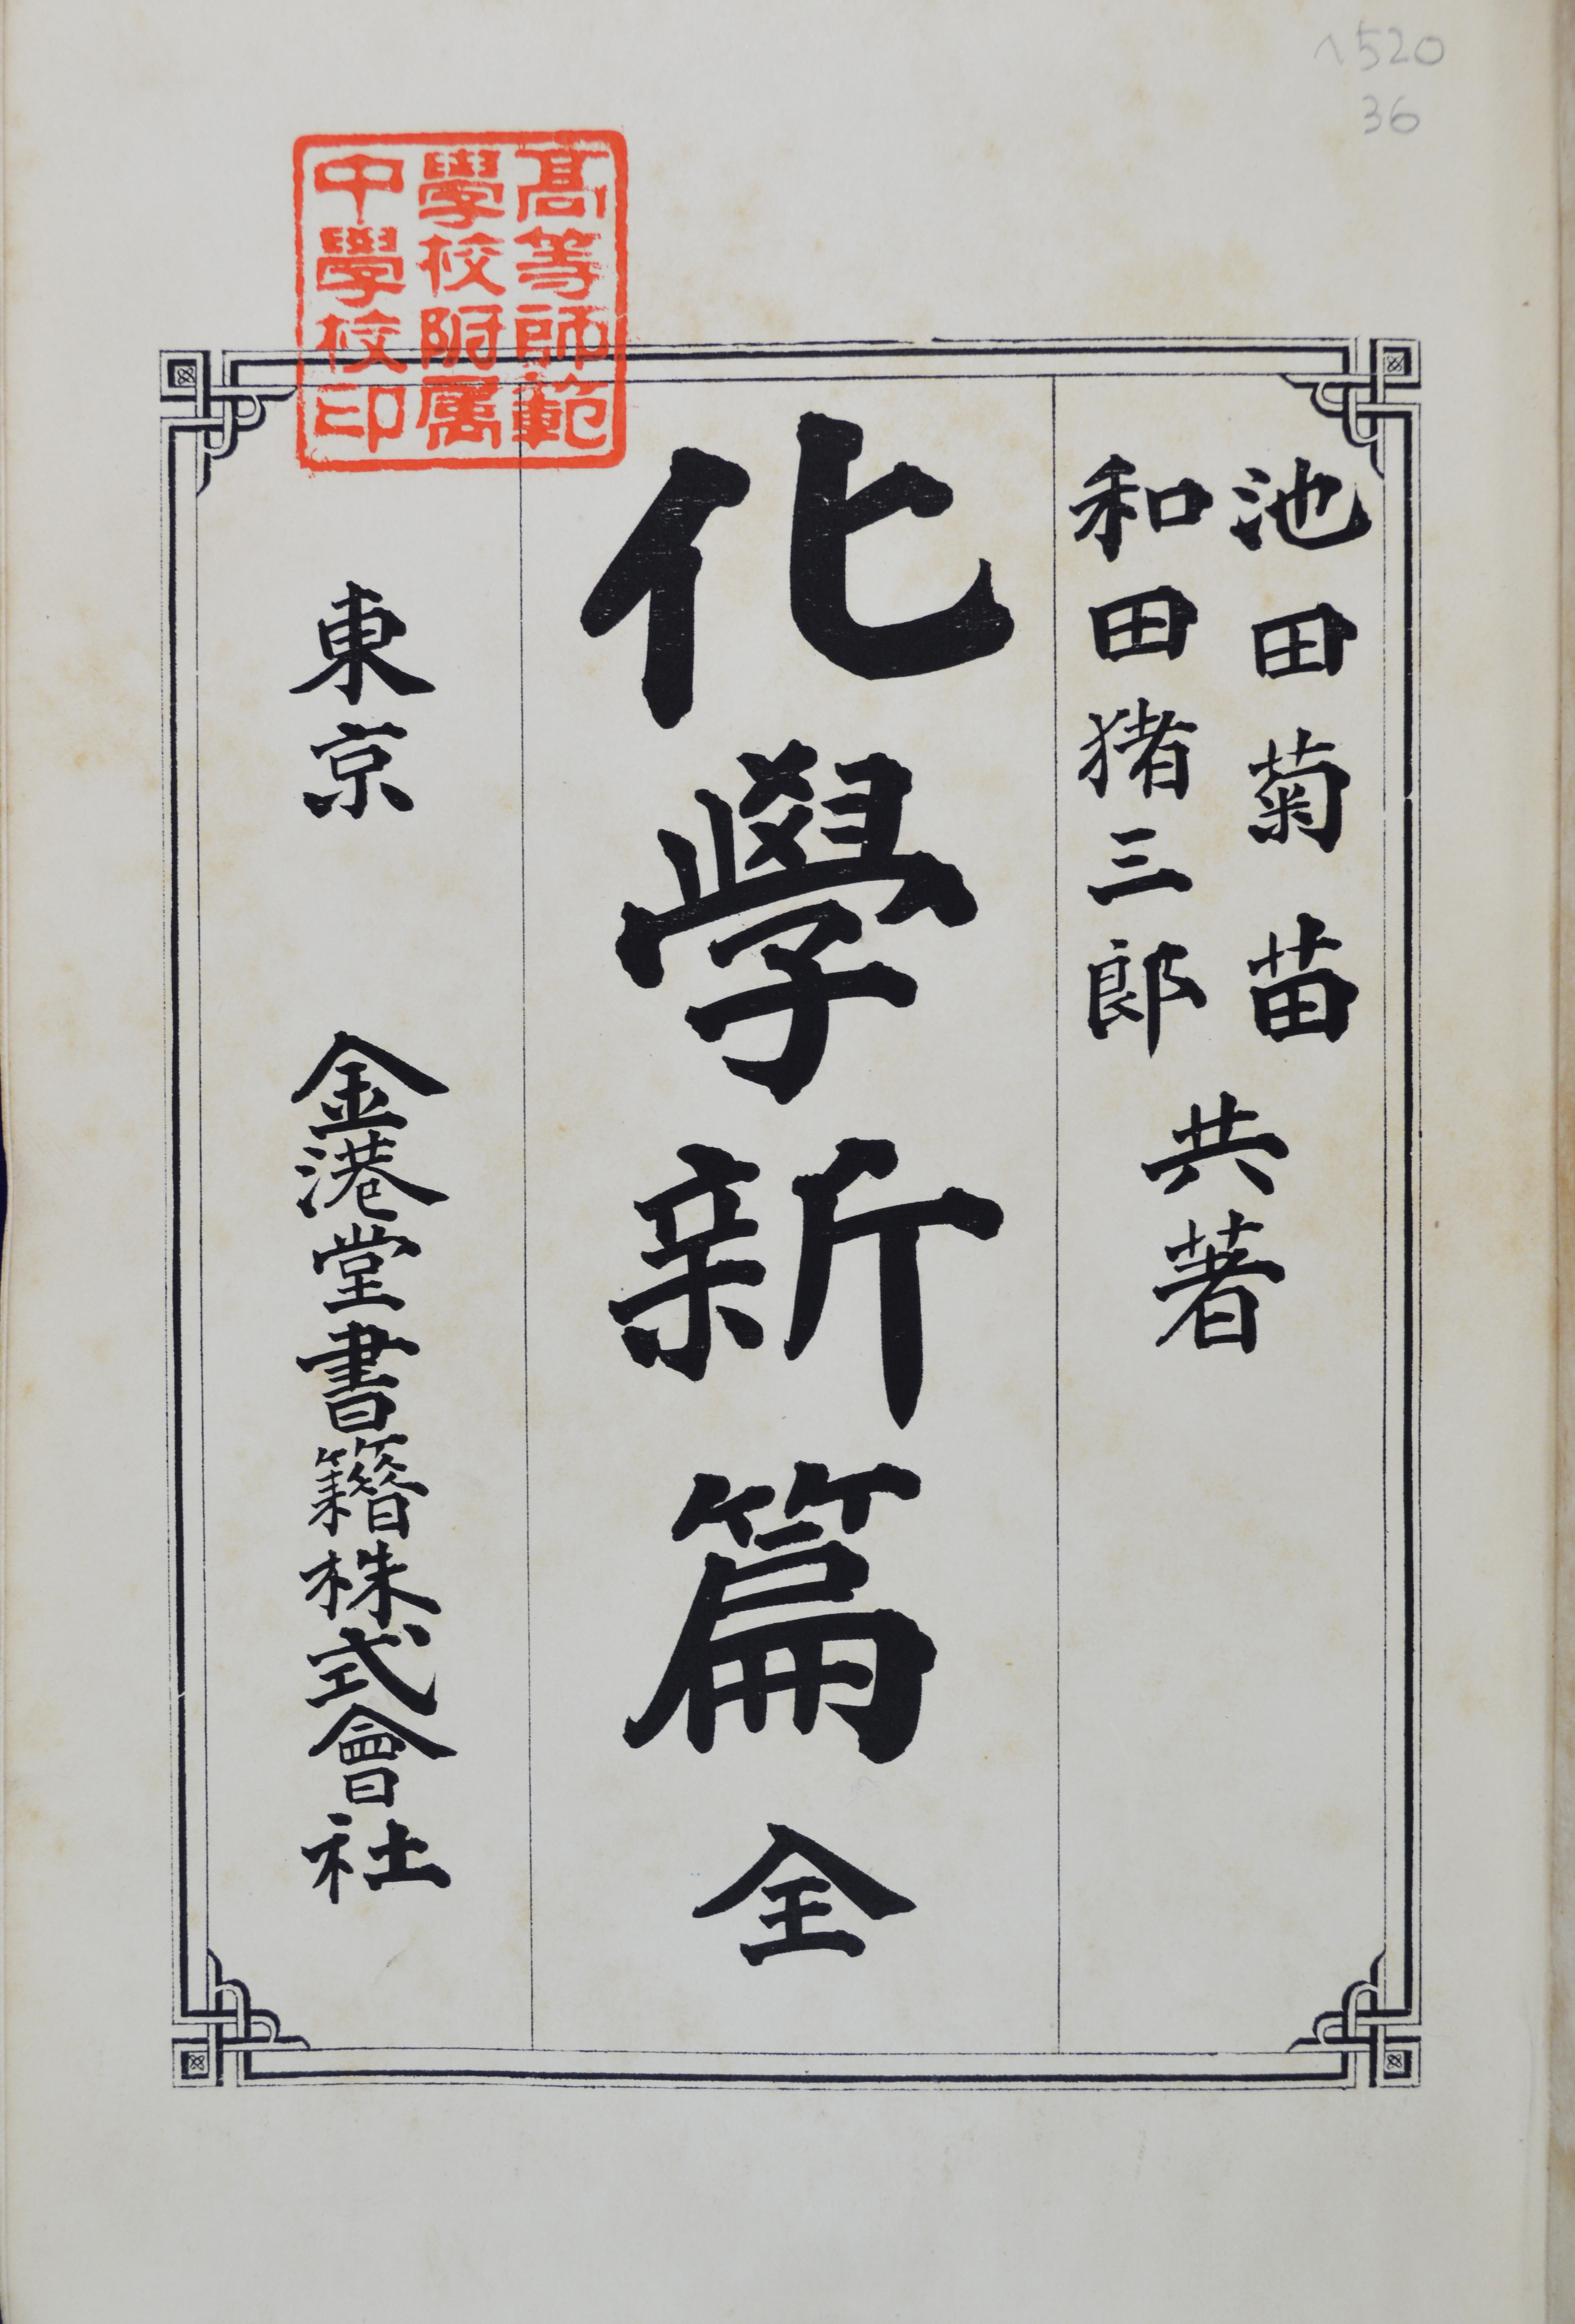 池田菊苗
和田猪三郎
共著
化學新篇 全
東京 金港堂書籍株式會社
高等師範
學校附属
中學校印
520
36